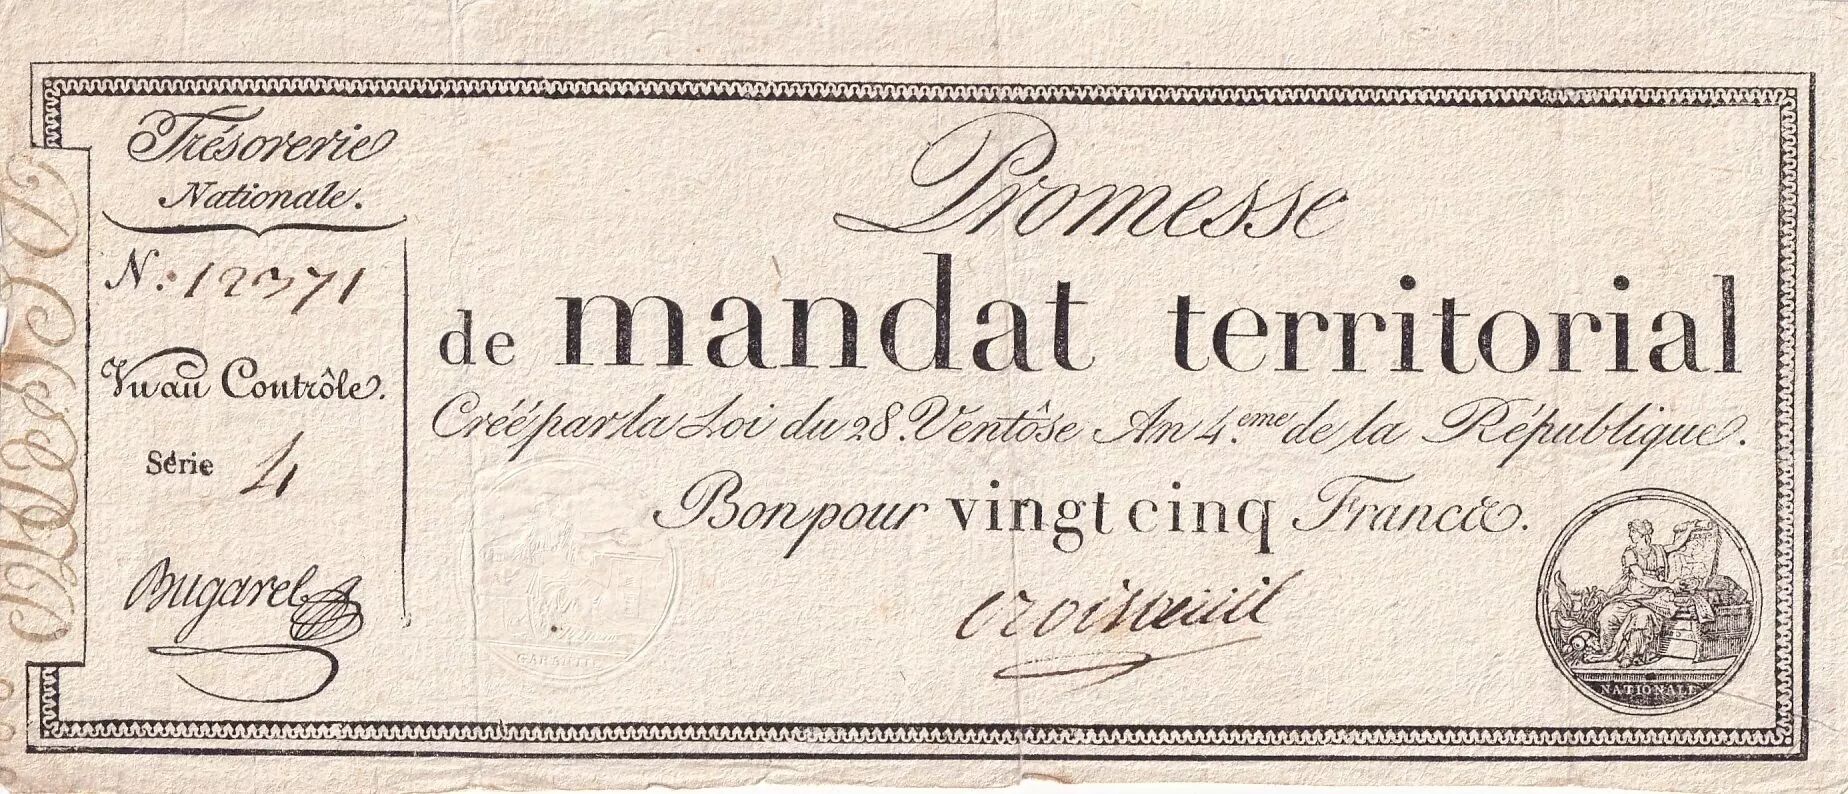 Trésorerie
Nationale.
N.: 12371
Vu au Contrôle.
Série 4
Bugarel
Promesse
de mandat territorial
Créé par la Loi du 28. Ventôse An 4.eme de la République.
Bon pour vingt cinq Francs.
NATIONALE